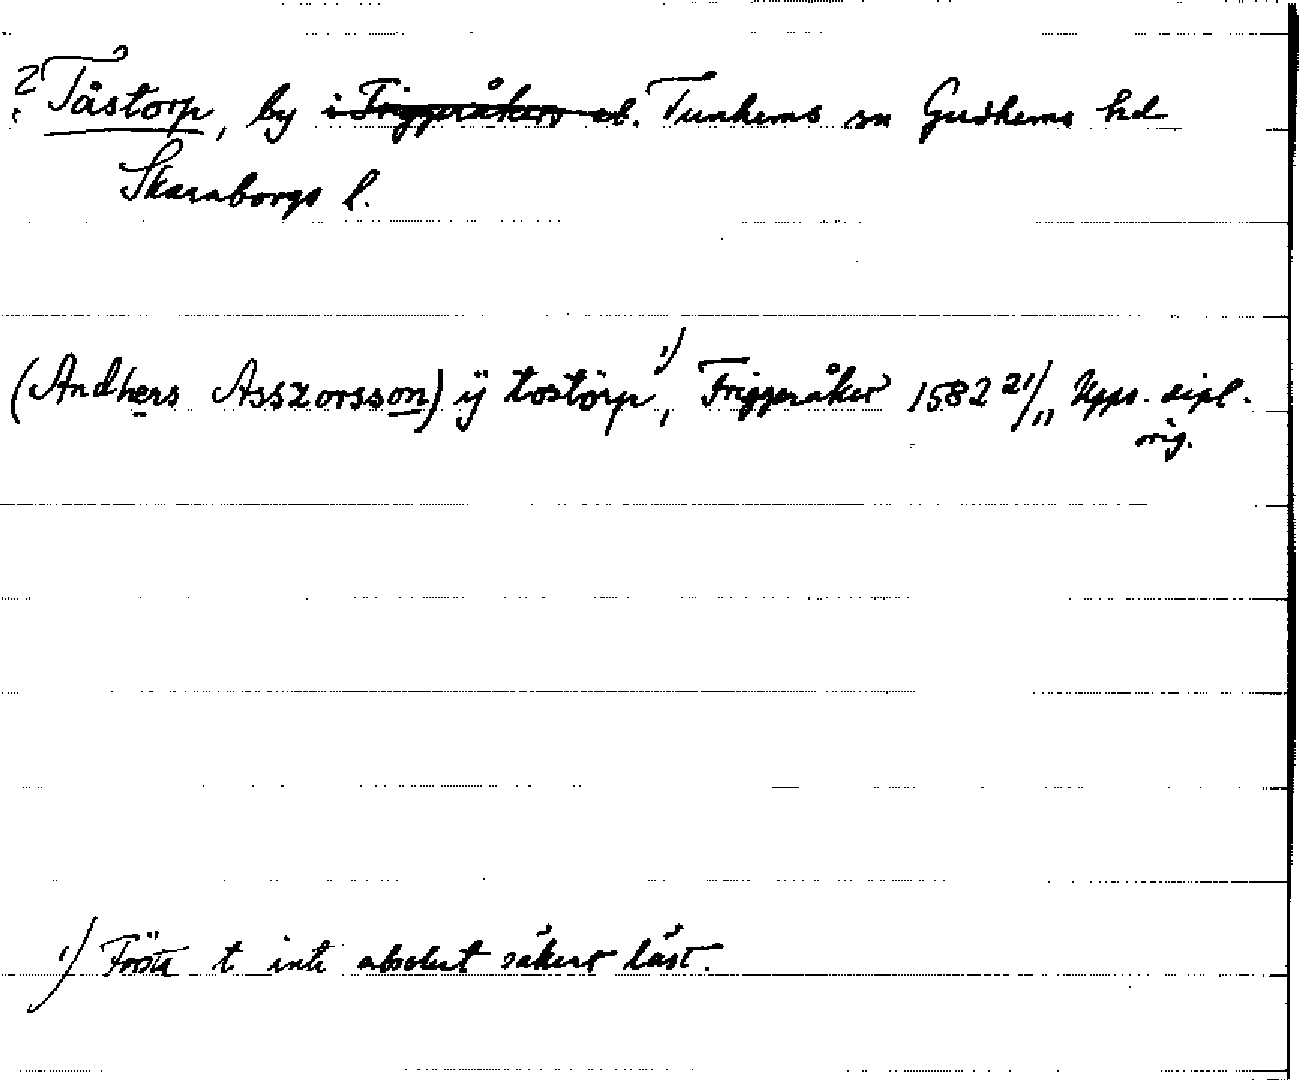 ? Tåstorp, by i Friggeråkers sb. Tunhems sn Gudhems hd
Skaraborgs l.
(Andhers Asszorsson) ÿ tostörp 1), Friggeråker 1582 21/11 Upps. dipl.
orig.
1) Första t inte absolut säkert läst.